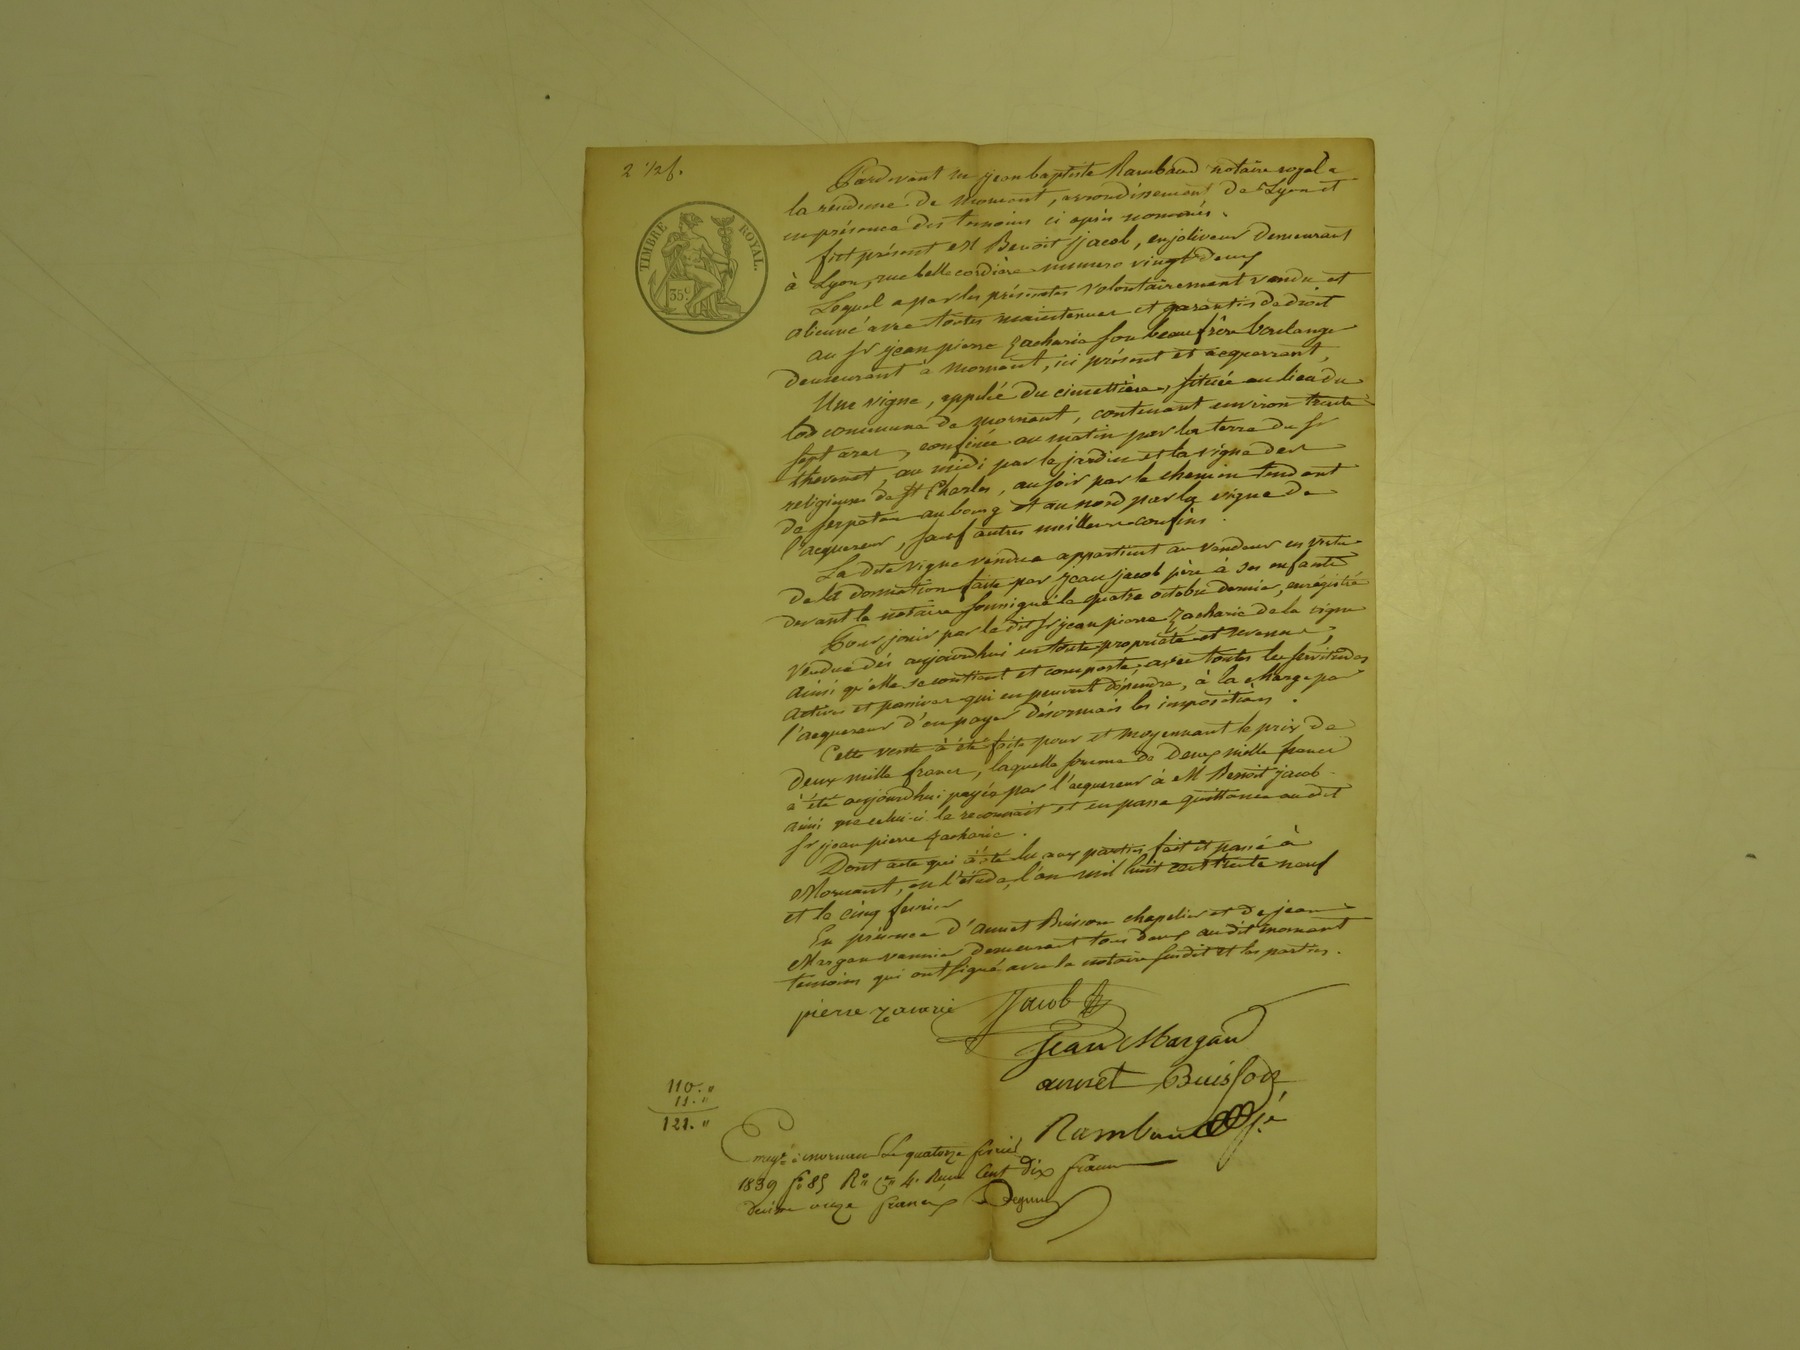 2 1/2 f.
TIMBRE ROYAL.
35 c
Pardevant me jean baptiste Rambaud notaire royal a
la residence de mornant, arrondissement de Lyon et
en présence des temoins ci après nommés.
fut présent M Benoit jacob, enjoliveur demeurant
à Lyon, rue belle cordière numero vingt deux
Lequel a par les présentes volontairement vendu et
alieuné avec toutes maintenues et garanties de droit
au sr jean pierre Zacharie son beau frère boulanger
demeurant à mornant, ici présent et acquerrant,
Une vigne, appelée du cimettière, située au lieu du
commune de mornant, contenant environ trente
sept ares, confinée au matin par la terre du sr
thevenet, au midi par le jardin et la vigne des
religieuses de St Charles, au soir par le chemin tendant
de au bourg et au nord par la vigne de
l'acquereur, sauf autres meilleurs confins.
La dite vigne vendue appartient au vendeur en vertu
de la donnation faite par jean jacob père à ses enfants
devant le notaire soussigné le quatre octobre dernier, enrégistré
Pour jouir par le dit sr jean pierre Zacharie de la vigne
vendue dés aujourdhui en toute propriété et revenu,
ainsi qu'elle se contient et comporte, avec toutes les servitudes
actives et passives qui en peuvent dépendre, à la charge par
l'acquereur d'en payer désormais les impositions.
Cette vente à été faite pour et moyennant le prix de
deux mille francs, laquelle somme de deux mille francs
à été aujourdhui payée par l'acquereur à M Benoit jacob
ainsi que celui-ci le reconnait et en passe quittance au dit
sr jean pierre Zacharie.
Dont acte qui à été lu aux parties, fait et passé à
Mornant, en l'étude, l'an mil huit cent trente neuf
et le cinq fevrier
En présence d'annet Buisson chapelier et de jean
Margan vannier demeurant tous deux au dit mornant
temoins qui ont signé avec le notaire susdit et les parties.
pierre zacarie Jacob
Jean Margan
annet Buisson
Rambaud
110. "
11. "
121. "
Enregé à mornant le quatorze fevrier
1839 fo 85 Ro Ce 4. Reçu Cent dix francs
decime onze francs